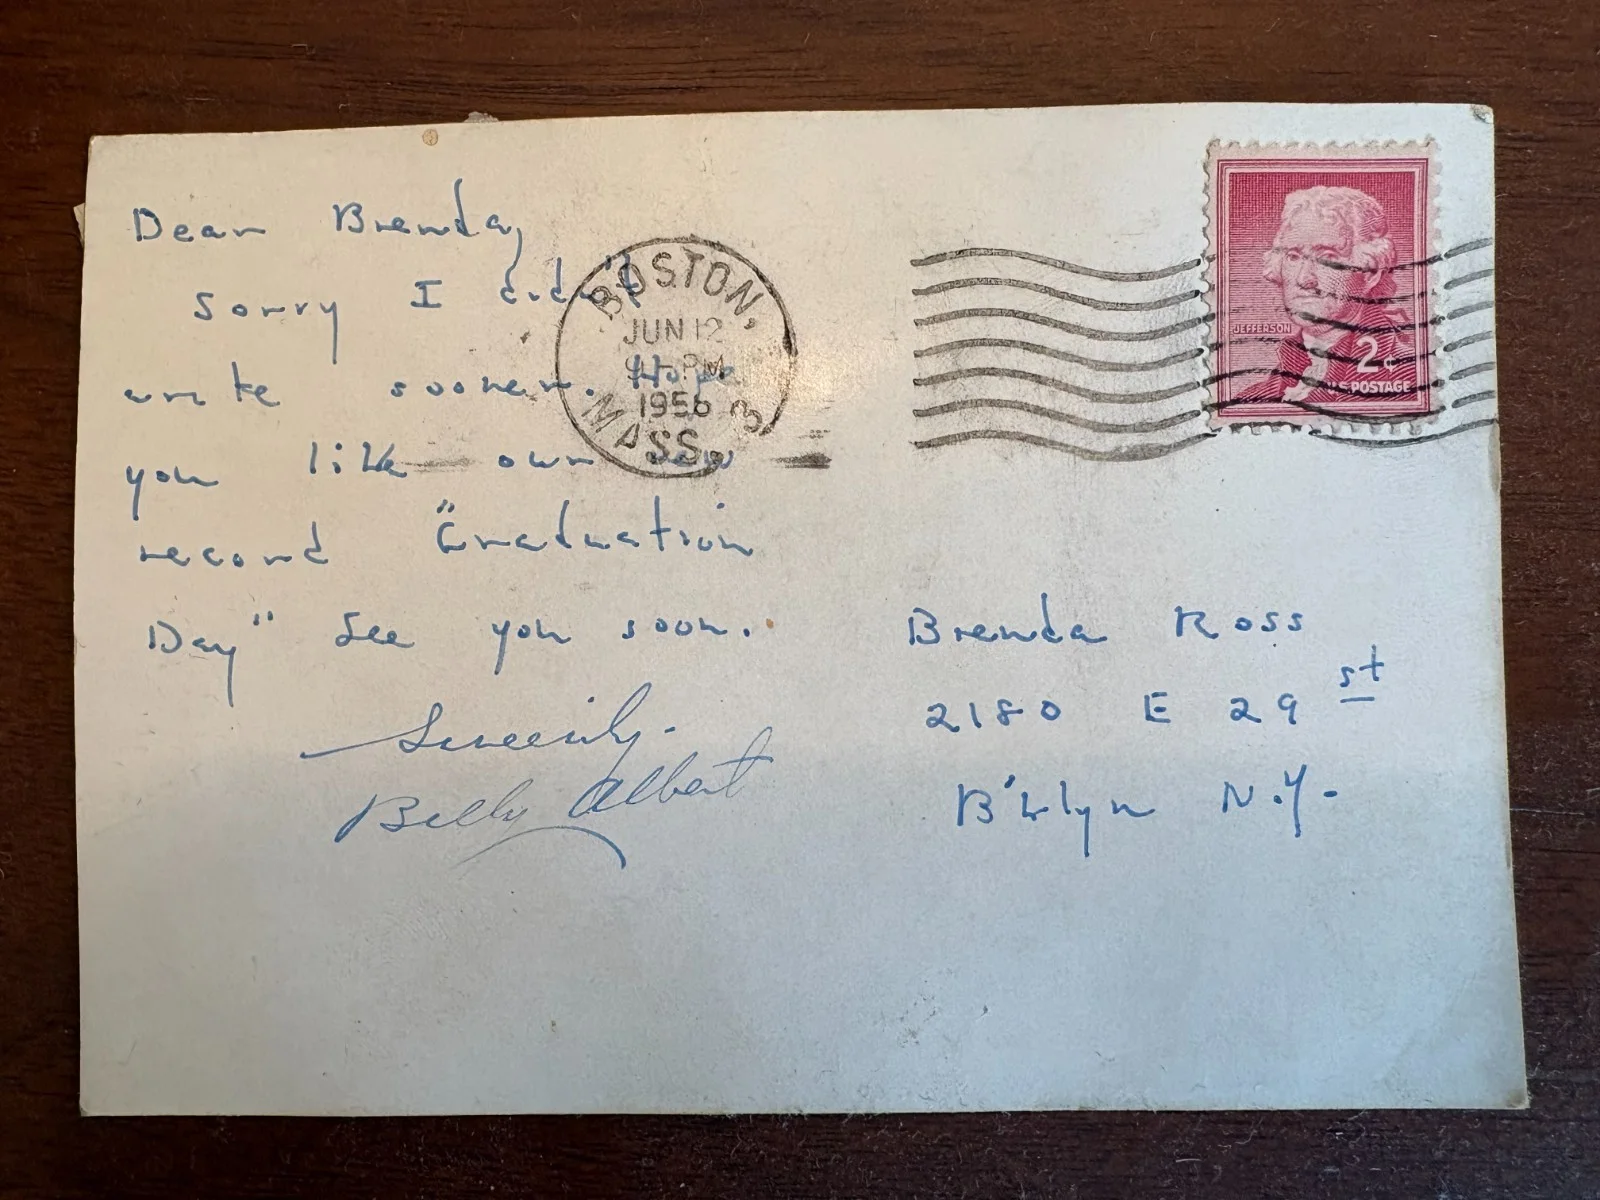 Dear Brenda,
Sorry I didn't
write sooner. Hope
you like our new
record "Graduation
Day" See you soon.
Sincerely.
Billy Albert
BOSTON,
MASS.
3
JUN 12
PM
1956
JEFFERSON
2¢
U.S. POSTAGE
Brenda Ross
2180 E 29 st
B'klyn N.Y.